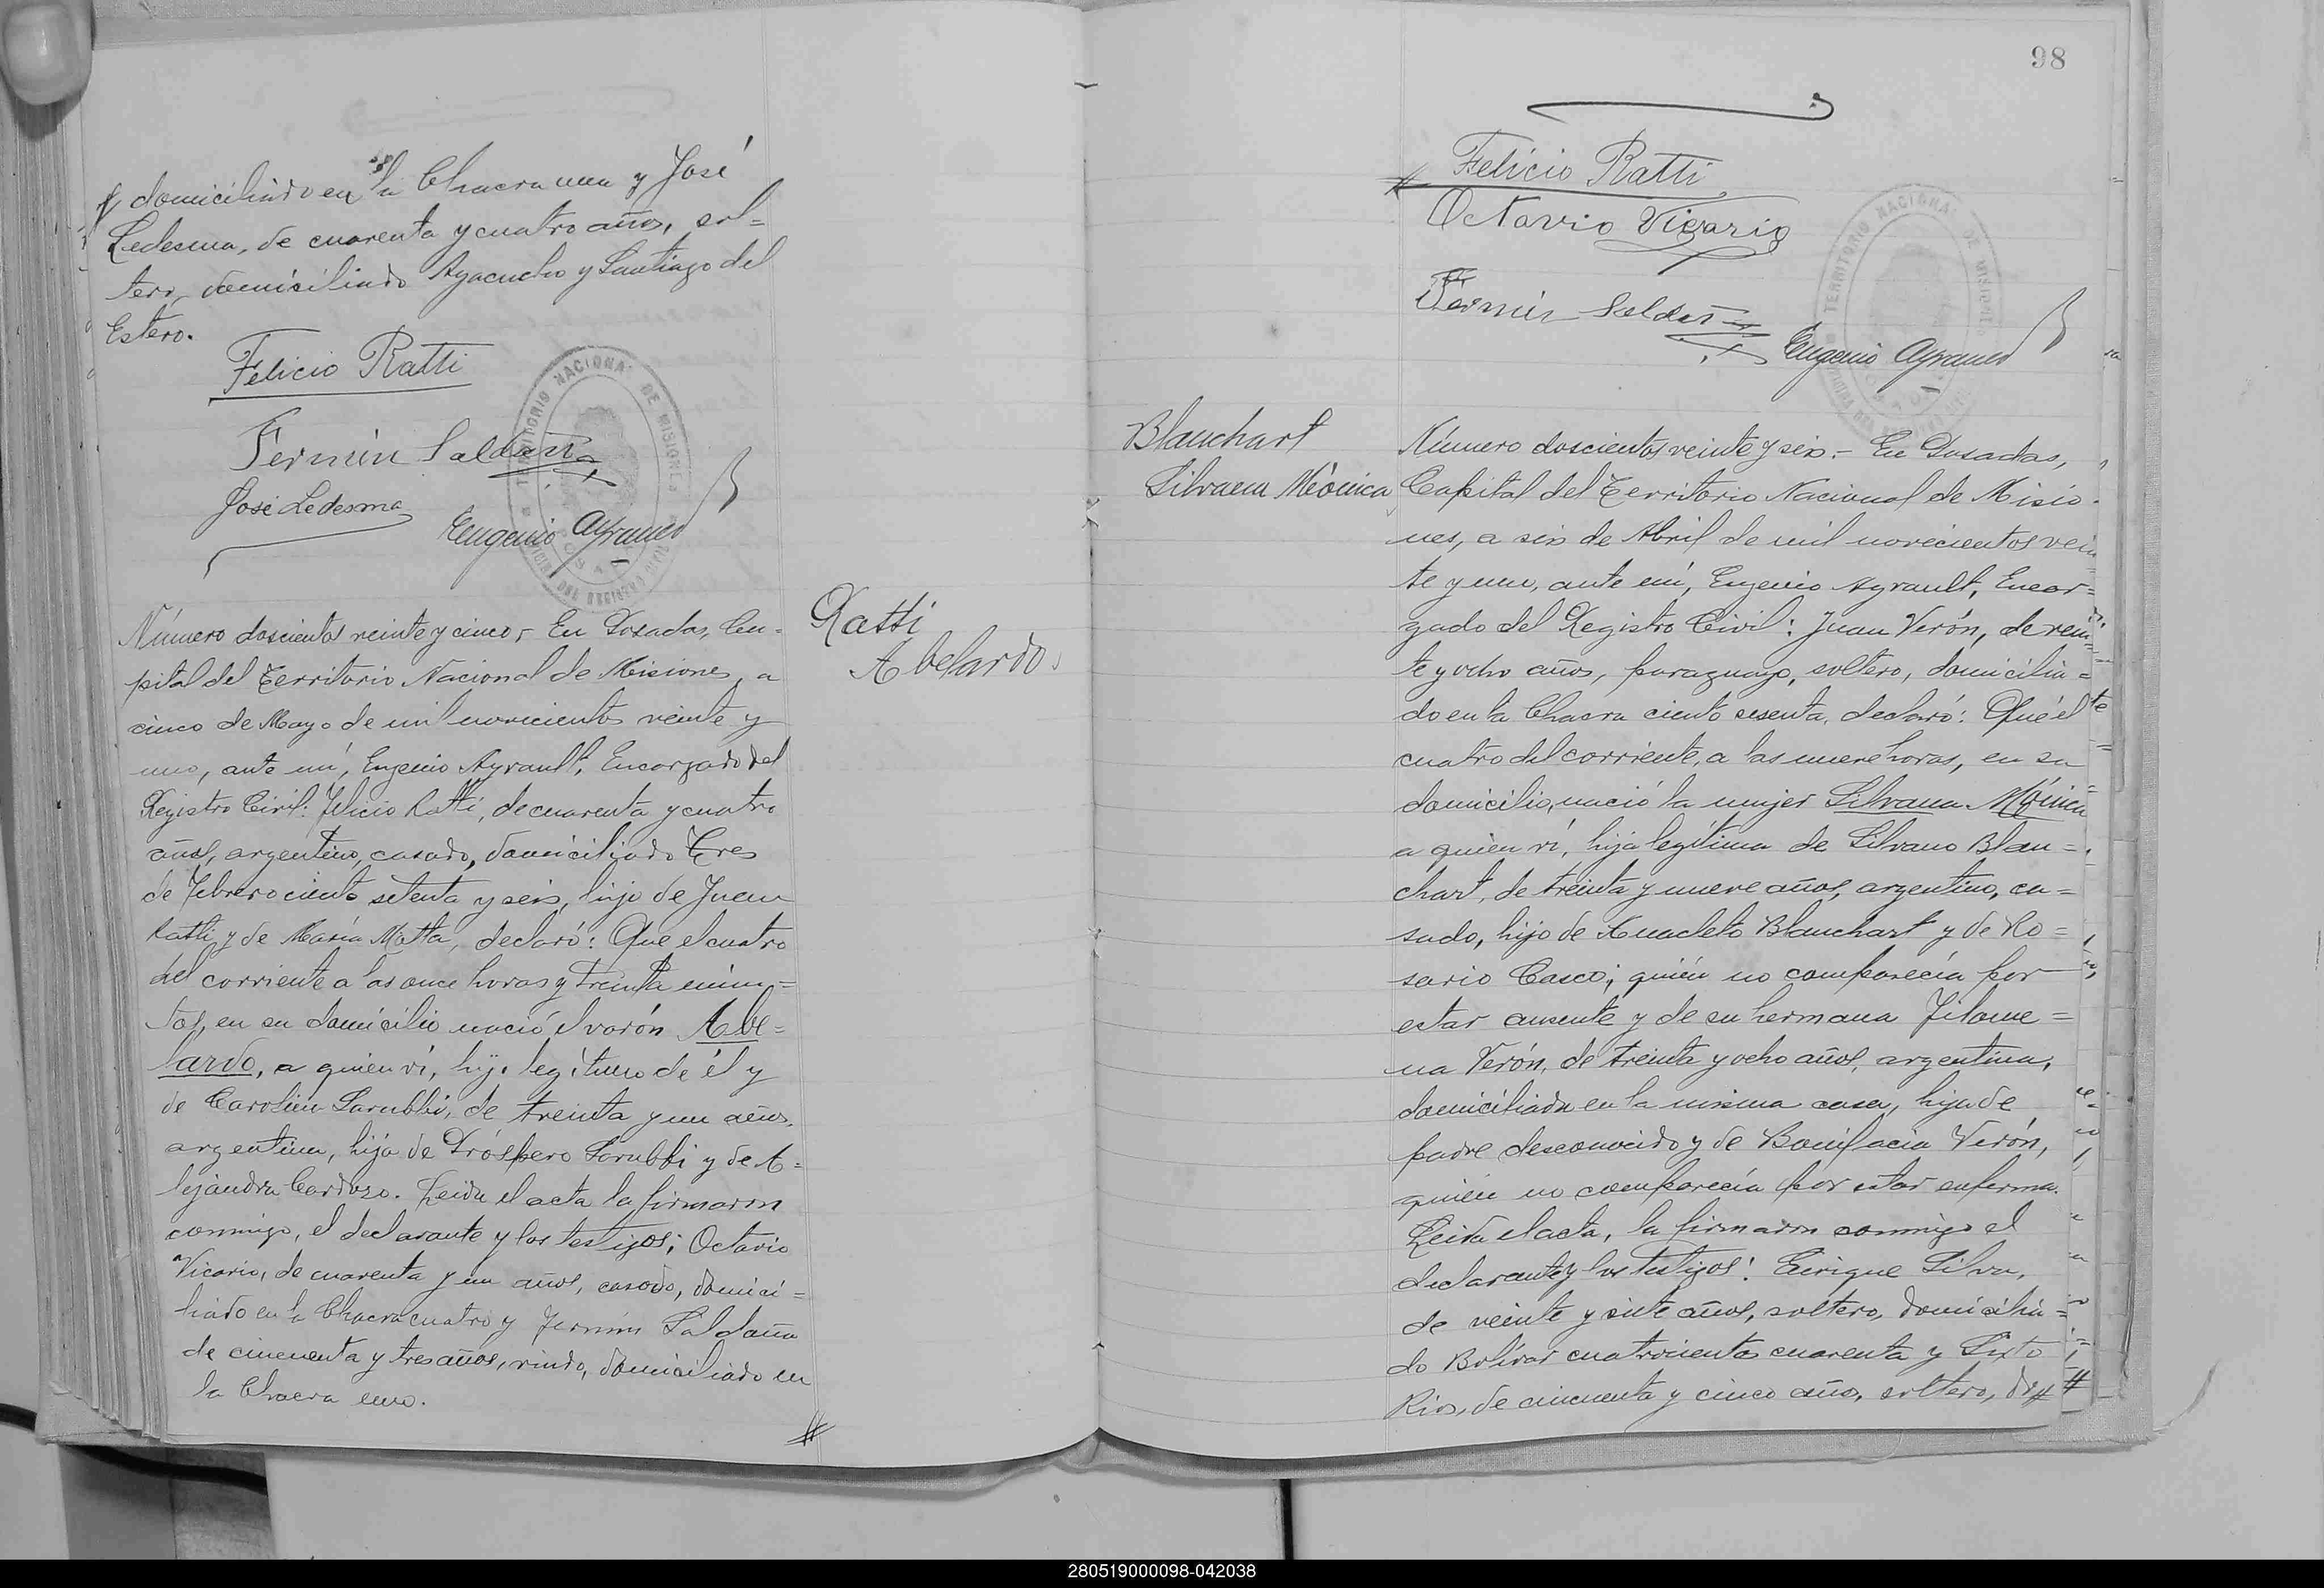 # domiciliado en la Chacra una y José
Ledesma, de cuarenta y cuatro años, sol=
tero, domiciliado Ayacucho y Santiago del
Estero.
Felicio Ratti
Fermín Saldaña
José Ledesma
Eugenio Ayrault
TERRITORIO NACIONAL DE MISIONES
Número doscientos veinte y cinco,- En Posadas, Ca=
pital del Territorio Nacional de Misiones, a
cinco de Mayo de mil novecientos veinte y
uno, ante mí, Eugenio Ayrault, Encargado del
Registro Civil: Felicio Ratti, de cuarenta y cuatro
años, argentino, casado, domiciliado Tres
de Febrero ciento setenta y seis, hijo de Juan
Ratti y de María Motta, declaró: Que el cuatro
del corriente a las once horas y treinta minu=
tos, en su domicilio nació el varón Abe=
lardo, a quien ví, hijo legítimo de él y
de Carolina Sarubbi, de treinta y un años,
argentina, hija de Próspero Sarubbi y de A=
lejandra Cardozo. Leida el acta la firmaron
conmigo, el declarante y los testigos; Octavio
Vicario, de cuarenta y un años, casado, domici=
liado en la Chacra cuatro y Fermín Saldaña
de cincuenta y tres años, viudo, domiciliado en
la Chacra uno.
#
Ratti
Abelardo.
98
# Felicio Ratti
Octavio Vicario
Fermín Saldaña
Eugenio Ayrault
TERRITORIO NACIONAL DE MISIONES
Blanchart
Silvana Mónica
Número doscientos veinte y seis.- En Posadas,
Capital del Territorio Nacional de Misio-
nes, a seis de Abril de mil novecientos vein
te y uno, ante mí, Eugenio Ayrault, Encar=
gado del Registro Civil: Juan Verón, de vein=
te y ocho años, paraguayo, soltero, domicilia=
do en la Chacra ciento sesenta, declaró: Que el
cuatro del corriente, a las nueve horas, en su
domicilio, nació la mujer Silvana Mónica
a quien ví, hija legítima de Silvano Blan=
chart, de treinta y nueve años, argentino, ca=
sado, hijo de Anacleto Blanchart y de Ro=
sario Casco; quién no comparecía por
estar ausente y de su hermana Filome=
na Verón, de treinta y ocho años, argentina,
domiciliada en la misma casa, hija de
padre desconocido y de Bonifacia Verón,
quién no comparecía por estar enferma.
Leida el acta, la firmaron conmigo el
declarante y los testigos: Enrique Silva,
de veinte y siete años, soltero, domicilia=
do Bolívar cuatrocientos cuarenta y Sixto
Rios, de cincuenta y cinco años, soltero, do#
#
280519000098-042038